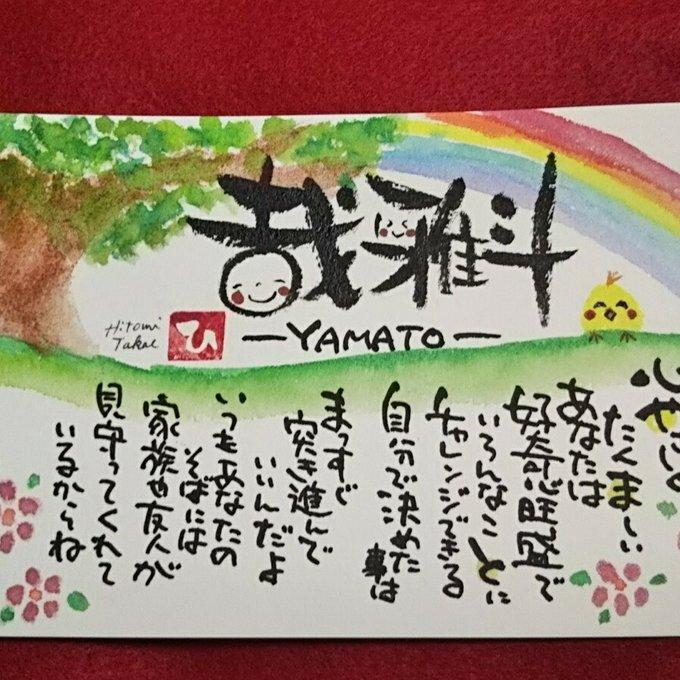 哉雅斗
—YAMATO—
Hitomi Takae
ひ
心や
たくましい
あなたは
好奇心旺盛で
いろんなことに
チャレンジできる
自分で決めた事は
まっすぐ
突き進んで
いいんだよ
いつもあなたの
そばには
家族や友人が
見守ってくれて
いるからね